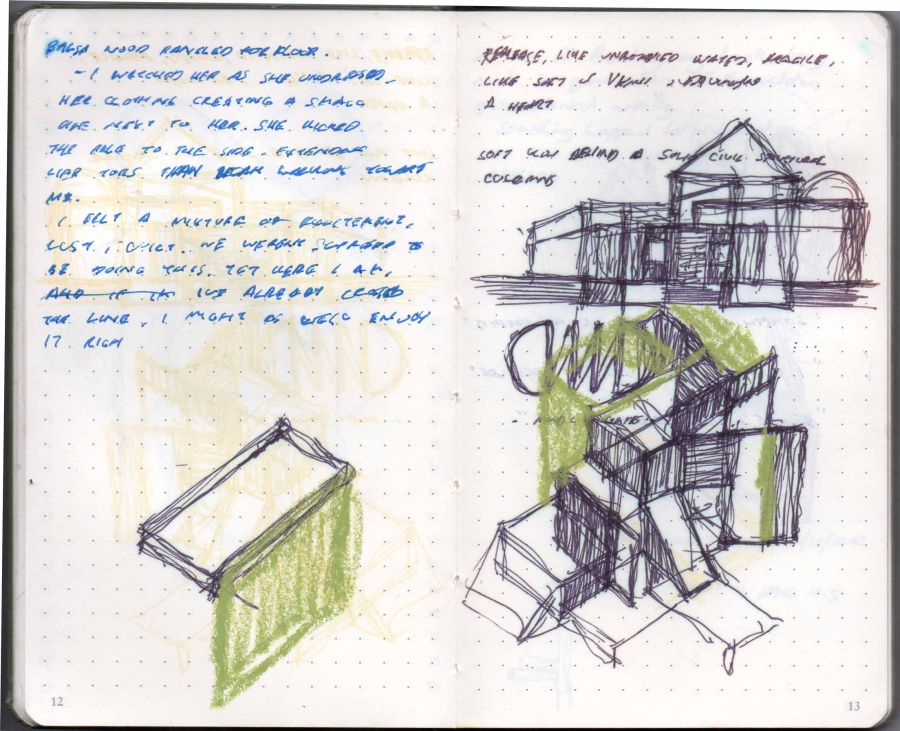 BALSA WOOD PANELED FOR FLOOR
- I WATCHED HER AS SHE UNDRESSED,
HER CLOTHING CREATING A SMALL
PILE NEXT TO HER. SHE KICKED
THE PILE TO THE SIDE. EXTENDING
HER TOES THAN WALKING TOWARD
ME.
I FELT A MIXTURE OF EXCITEMENT,
LUST, GUILT. WE WEREN'T SUPPOSED TO
BE DOING THIS. YET HERE I AM,
I'VE ALREADY CROSSED
THE LINE, I MIGHT AS WELL ENJOY
IT RIGH
12
RELEASE, LIKE UNBOTTLED WATER, FRAGILE,
LIKE
A HEART
SOFT BEHIND A SOLID CIVIL
COLUMNS
13